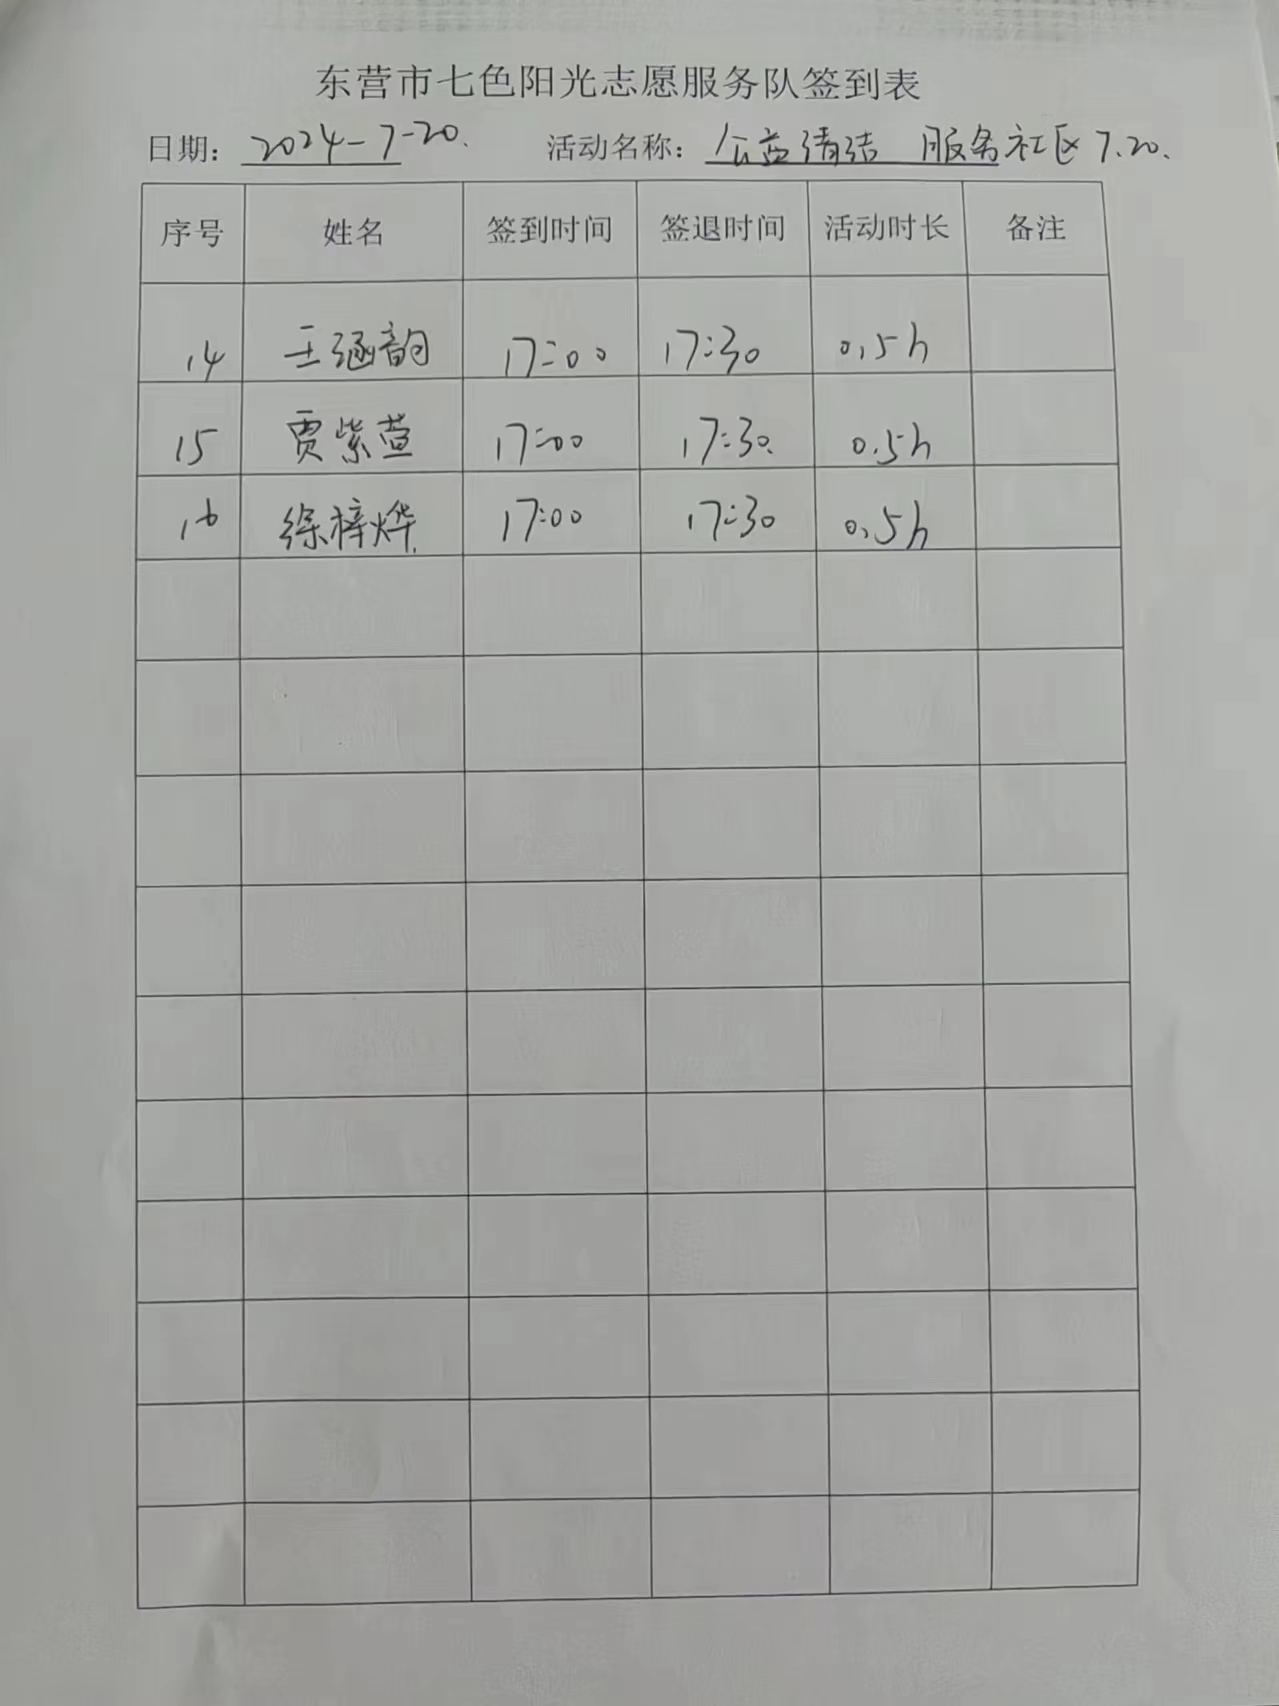 东营市七色阳光志愿服务队签到表
日期：2024-7-20. 活动名称：公益清洁 服务社区7.20.
序号 姓名 签到时间 签退时间 活动时长 备注
14 王涵韵 17:00 17:30 0.5h
15 贾紫萱 17:00 17:30. 0.5h
16 徐梓烨 17:00 17:30 0.5h